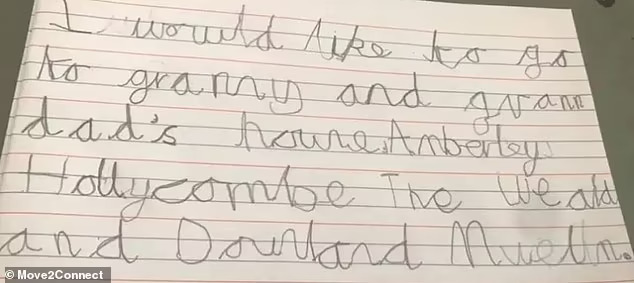 I would like to go
to granny and grann
dad's house, Amberley
Hollycombe The Weald
and Downland
© Move2Connect